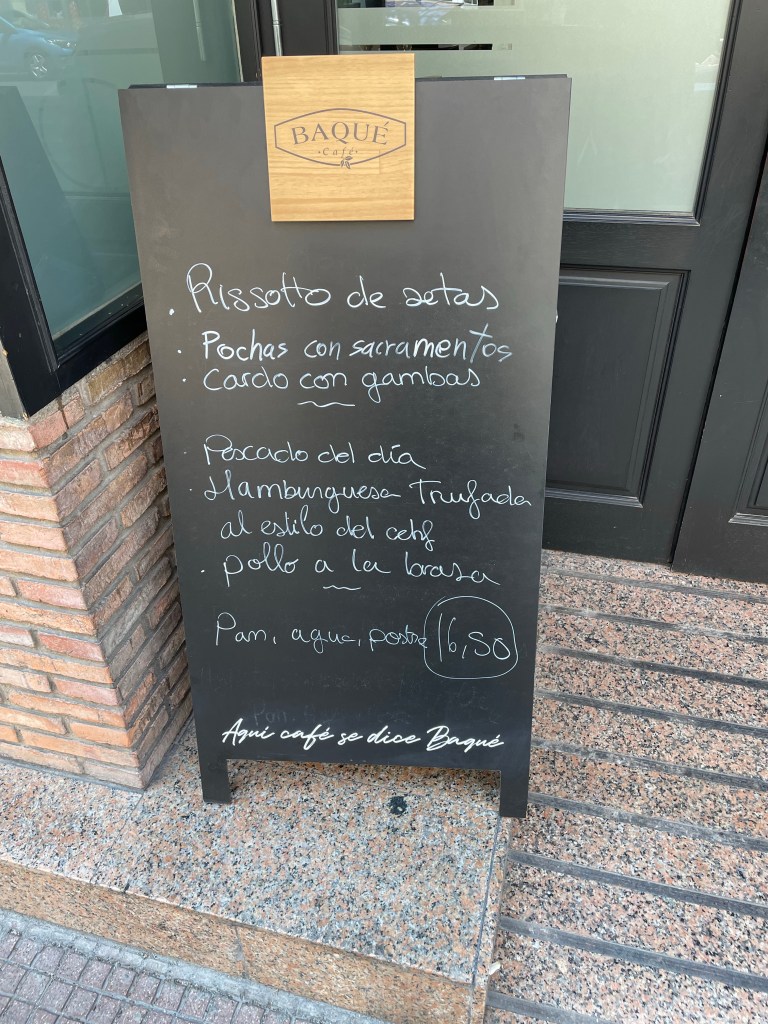 BAQUÉ
·Café·
· Rissotto de setas
· Pochas con sacramentos
· Cardo con gambas
· Pescado del día
· Hamburguesa Trufada
al estilo del cehf
· pollo a la brasa
Pan, agua, postre 16,50
Aquí café se dice Baqué